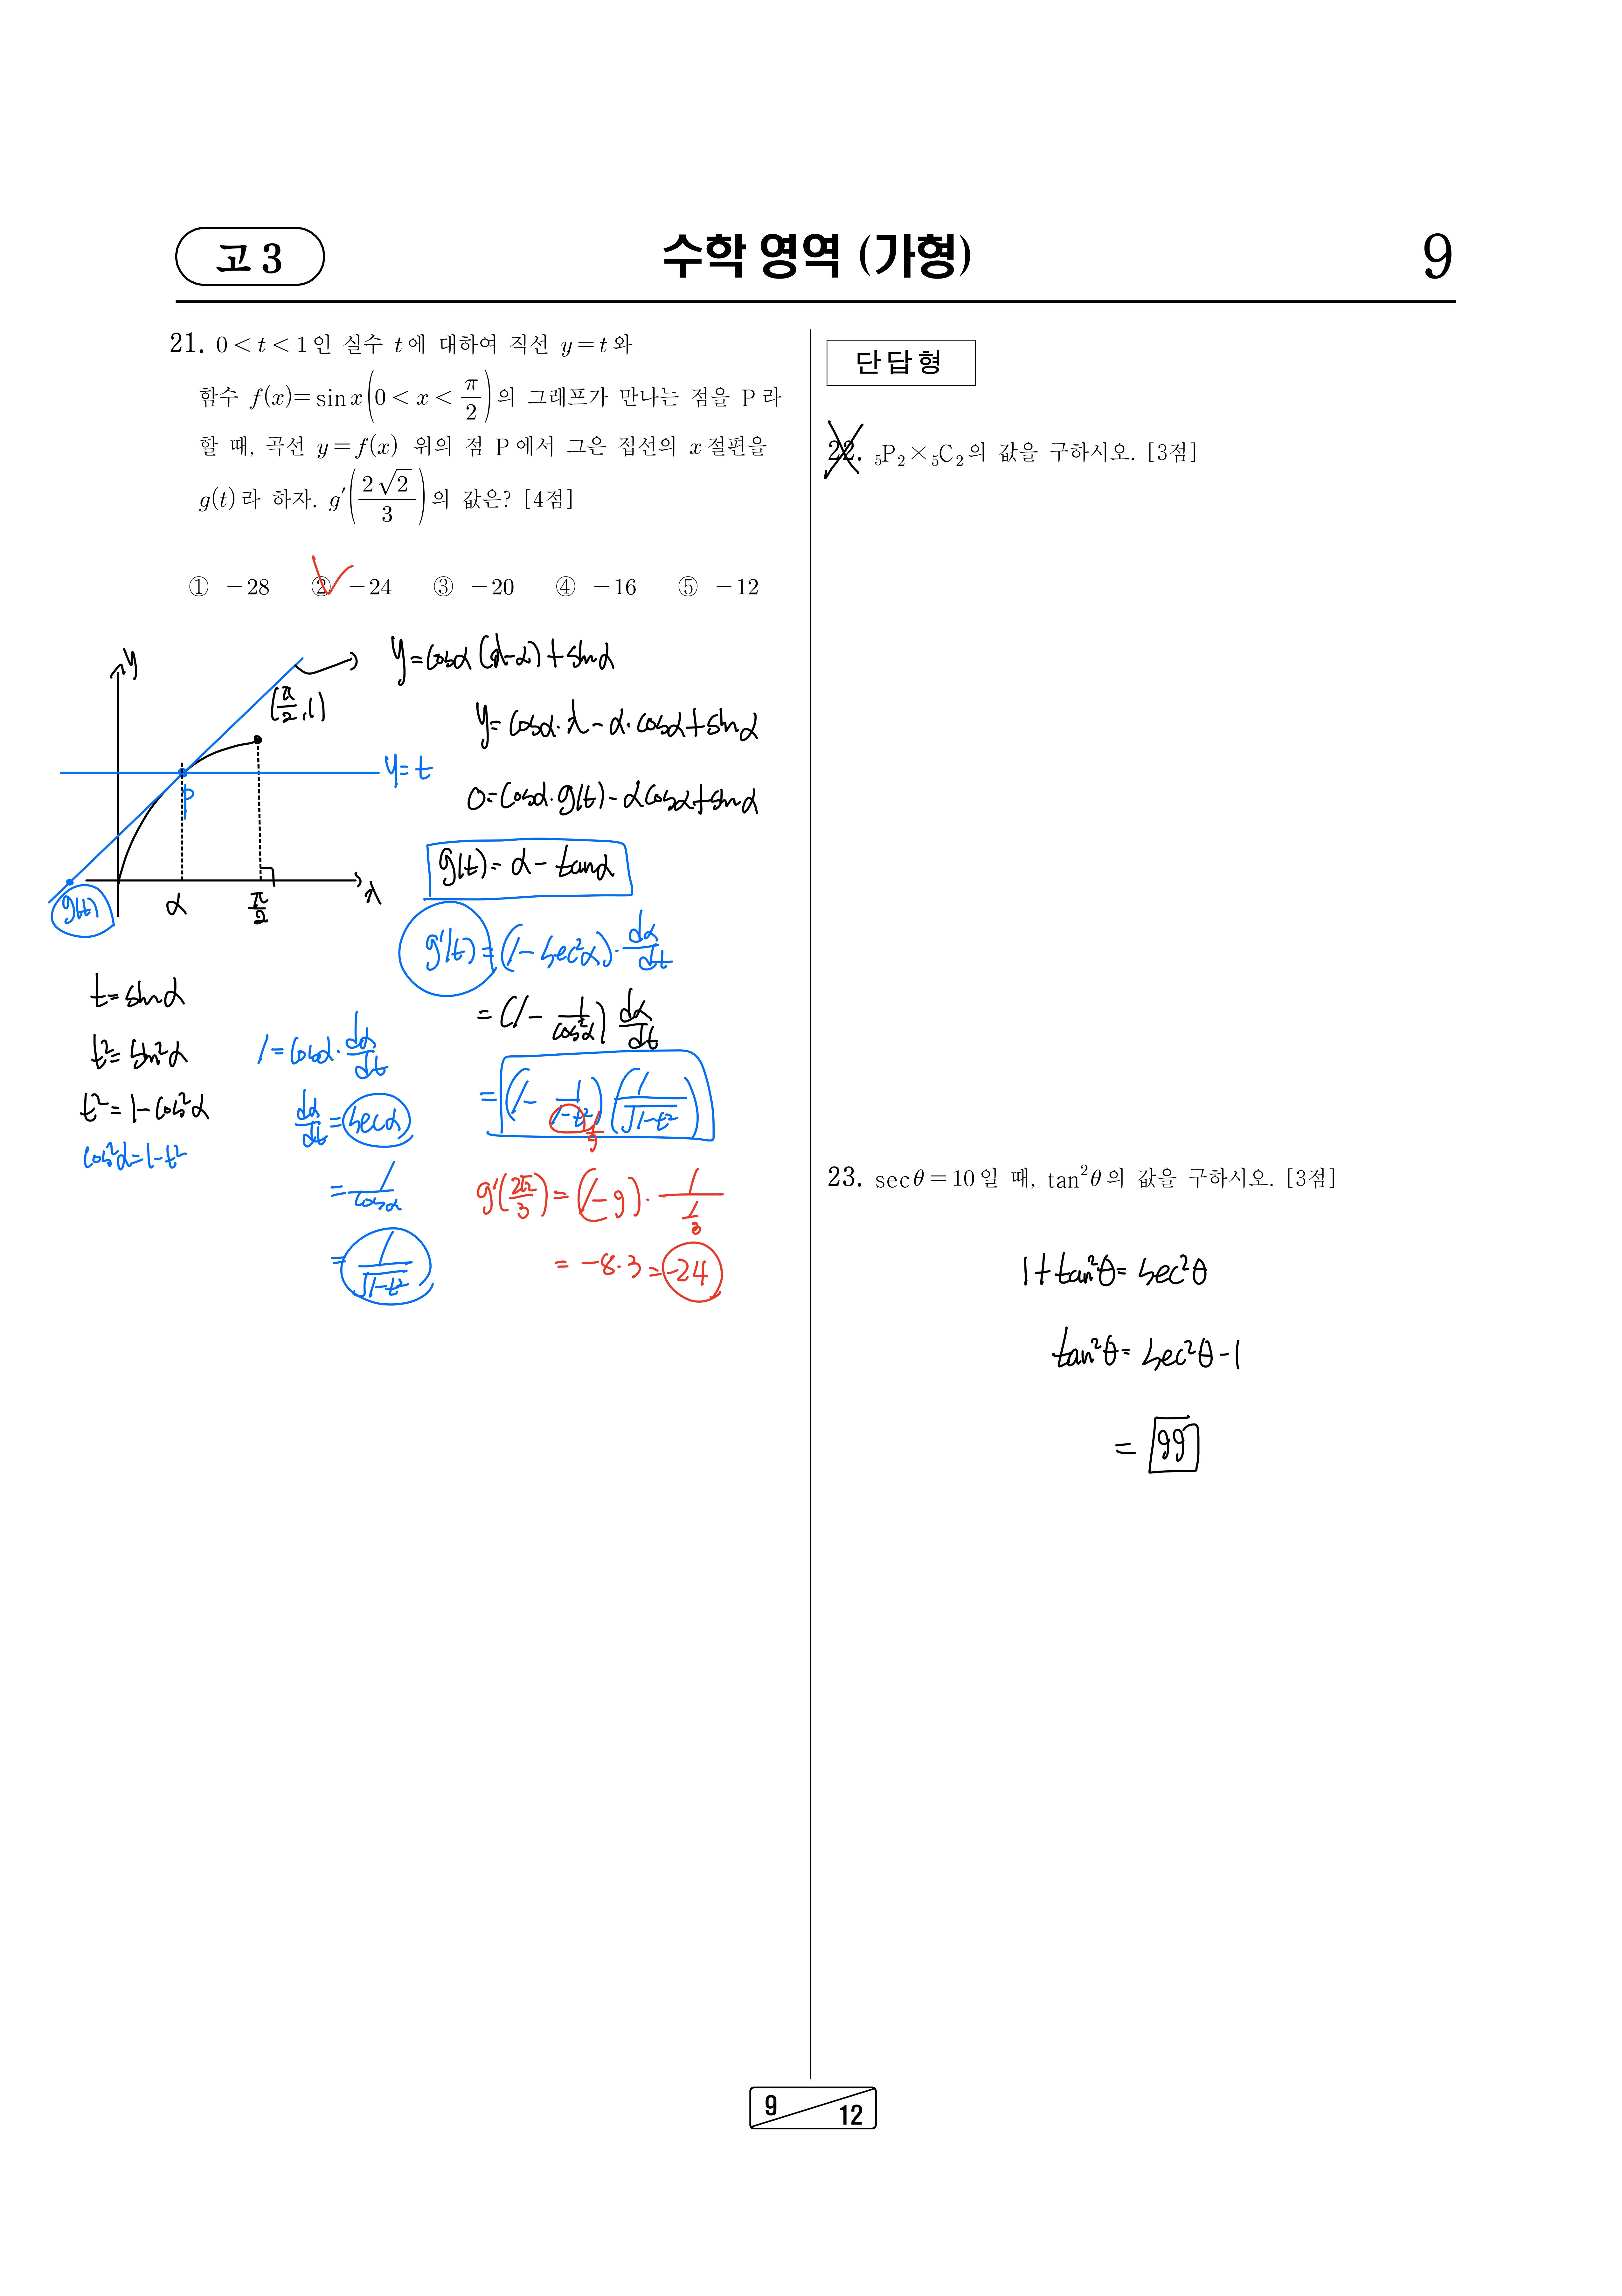 고 3
수학 영역 (가형)
9
21. 0 < t < 1인 실수 t에 대하여 직선 y = t와
함수 f(x) = sin x (0 < x < π/2)의 그래프가 만나는 점을 P라
할 때, 곡선 y = f(x) 위의 점 P에서 그은 접선의 x절편을
g(t)라 하자. g′(2√2/3)의 값은? [4점]
① −28 ② −24 ③ −20 ④ −16 ⑤ −12
y
(π/2, 1)
y = t
P
g(t)
α
π/2
x
y = cosα (x−α) + sinα
y = cosα·x − α·cosα + sinα
0 = cosα·g(t) − αcosα + sinα
g(t) = α − tanα
g′(t) = (1 − sec²α)·dα/dt
= (1 − 1/cos²α) dα/dt
= (1 − 1/(1−t²)) (1/√(1−t²))
1/9
g′(2√2/3) = (1−9)·1/(1/3)
= −8·3 = −24
t = sinα
t² = sin²α
t² = 1 − cos²α
cos²α = 1 − t²
1 = cosα·dα/dt
dα/dt = secα
= 1/cosα
= 1/√(1−t²)
단답형
22. ₅P₂ × ₅C₂의 값을 구하시오. [3점]
23. secθ = 10일 때, tan²θ의 값을 구하시오. [3점]
1 + tan²θ = sec²θ
tan²θ = sec²θ − 1
= 99
9
12